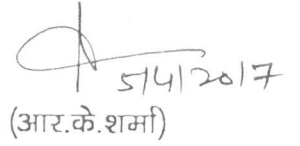 5/4/2017
(आर.के.शर्मा)